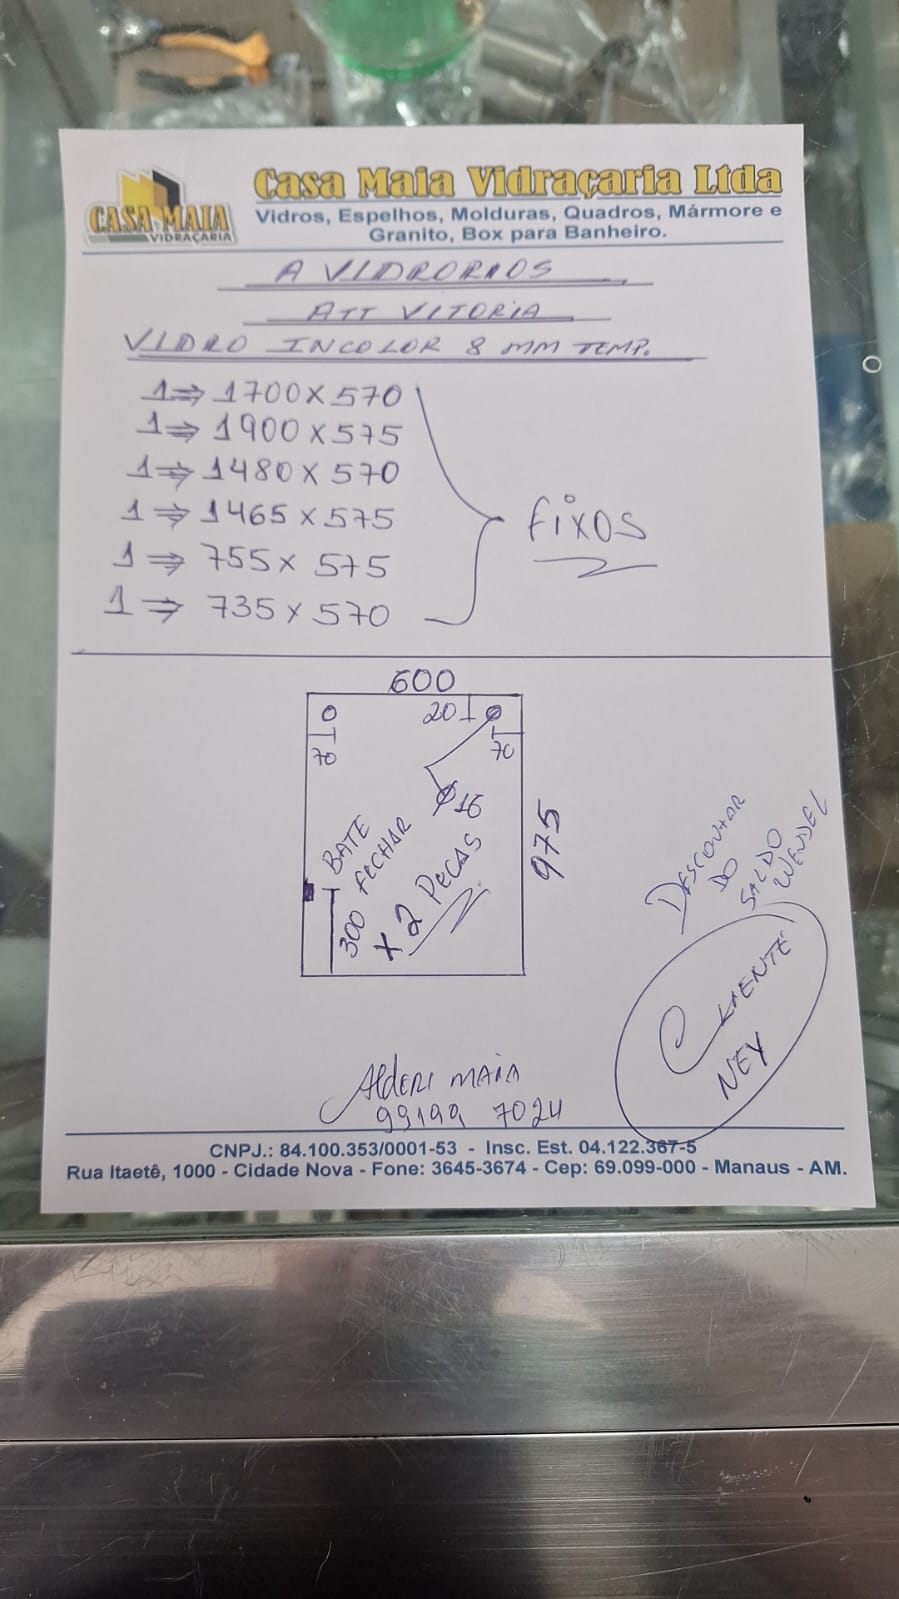 CASA MAIA
VIDRAÇARIA
Casa Maia Vidraçaria Ltda
Vidros, Espelhos, Molduras, Quadros, Mármore e
Granito, Box para Banheiro.
A VIDRORIOS
ATT VITORIA
VIDRO INCOLOR 8 MM TEMP.
1⇒ 1700 x 570
1⇒ 1900 x 575
1⇒ 1480 x 570
1⇒ 1465 x 575
1⇒ 755 x 575
1⇒ 735 x 570
fixos
600
20
70
70
Ø16
975
BATE
FECHAR
300
x 2 PECAS
DESCONTAR
DO
SALDO
WENDEL
CLIENTE
NEY
Alderi MAIA
99199 7024
CNPJ.: 84.100.353/0001-53 - Insc. Est. 04.122.367-5
Rua Itaetê, 1000 - Cidade Nova - Fone: 3645-3674 - Cep: 69.099-000 - Manaus - AM.